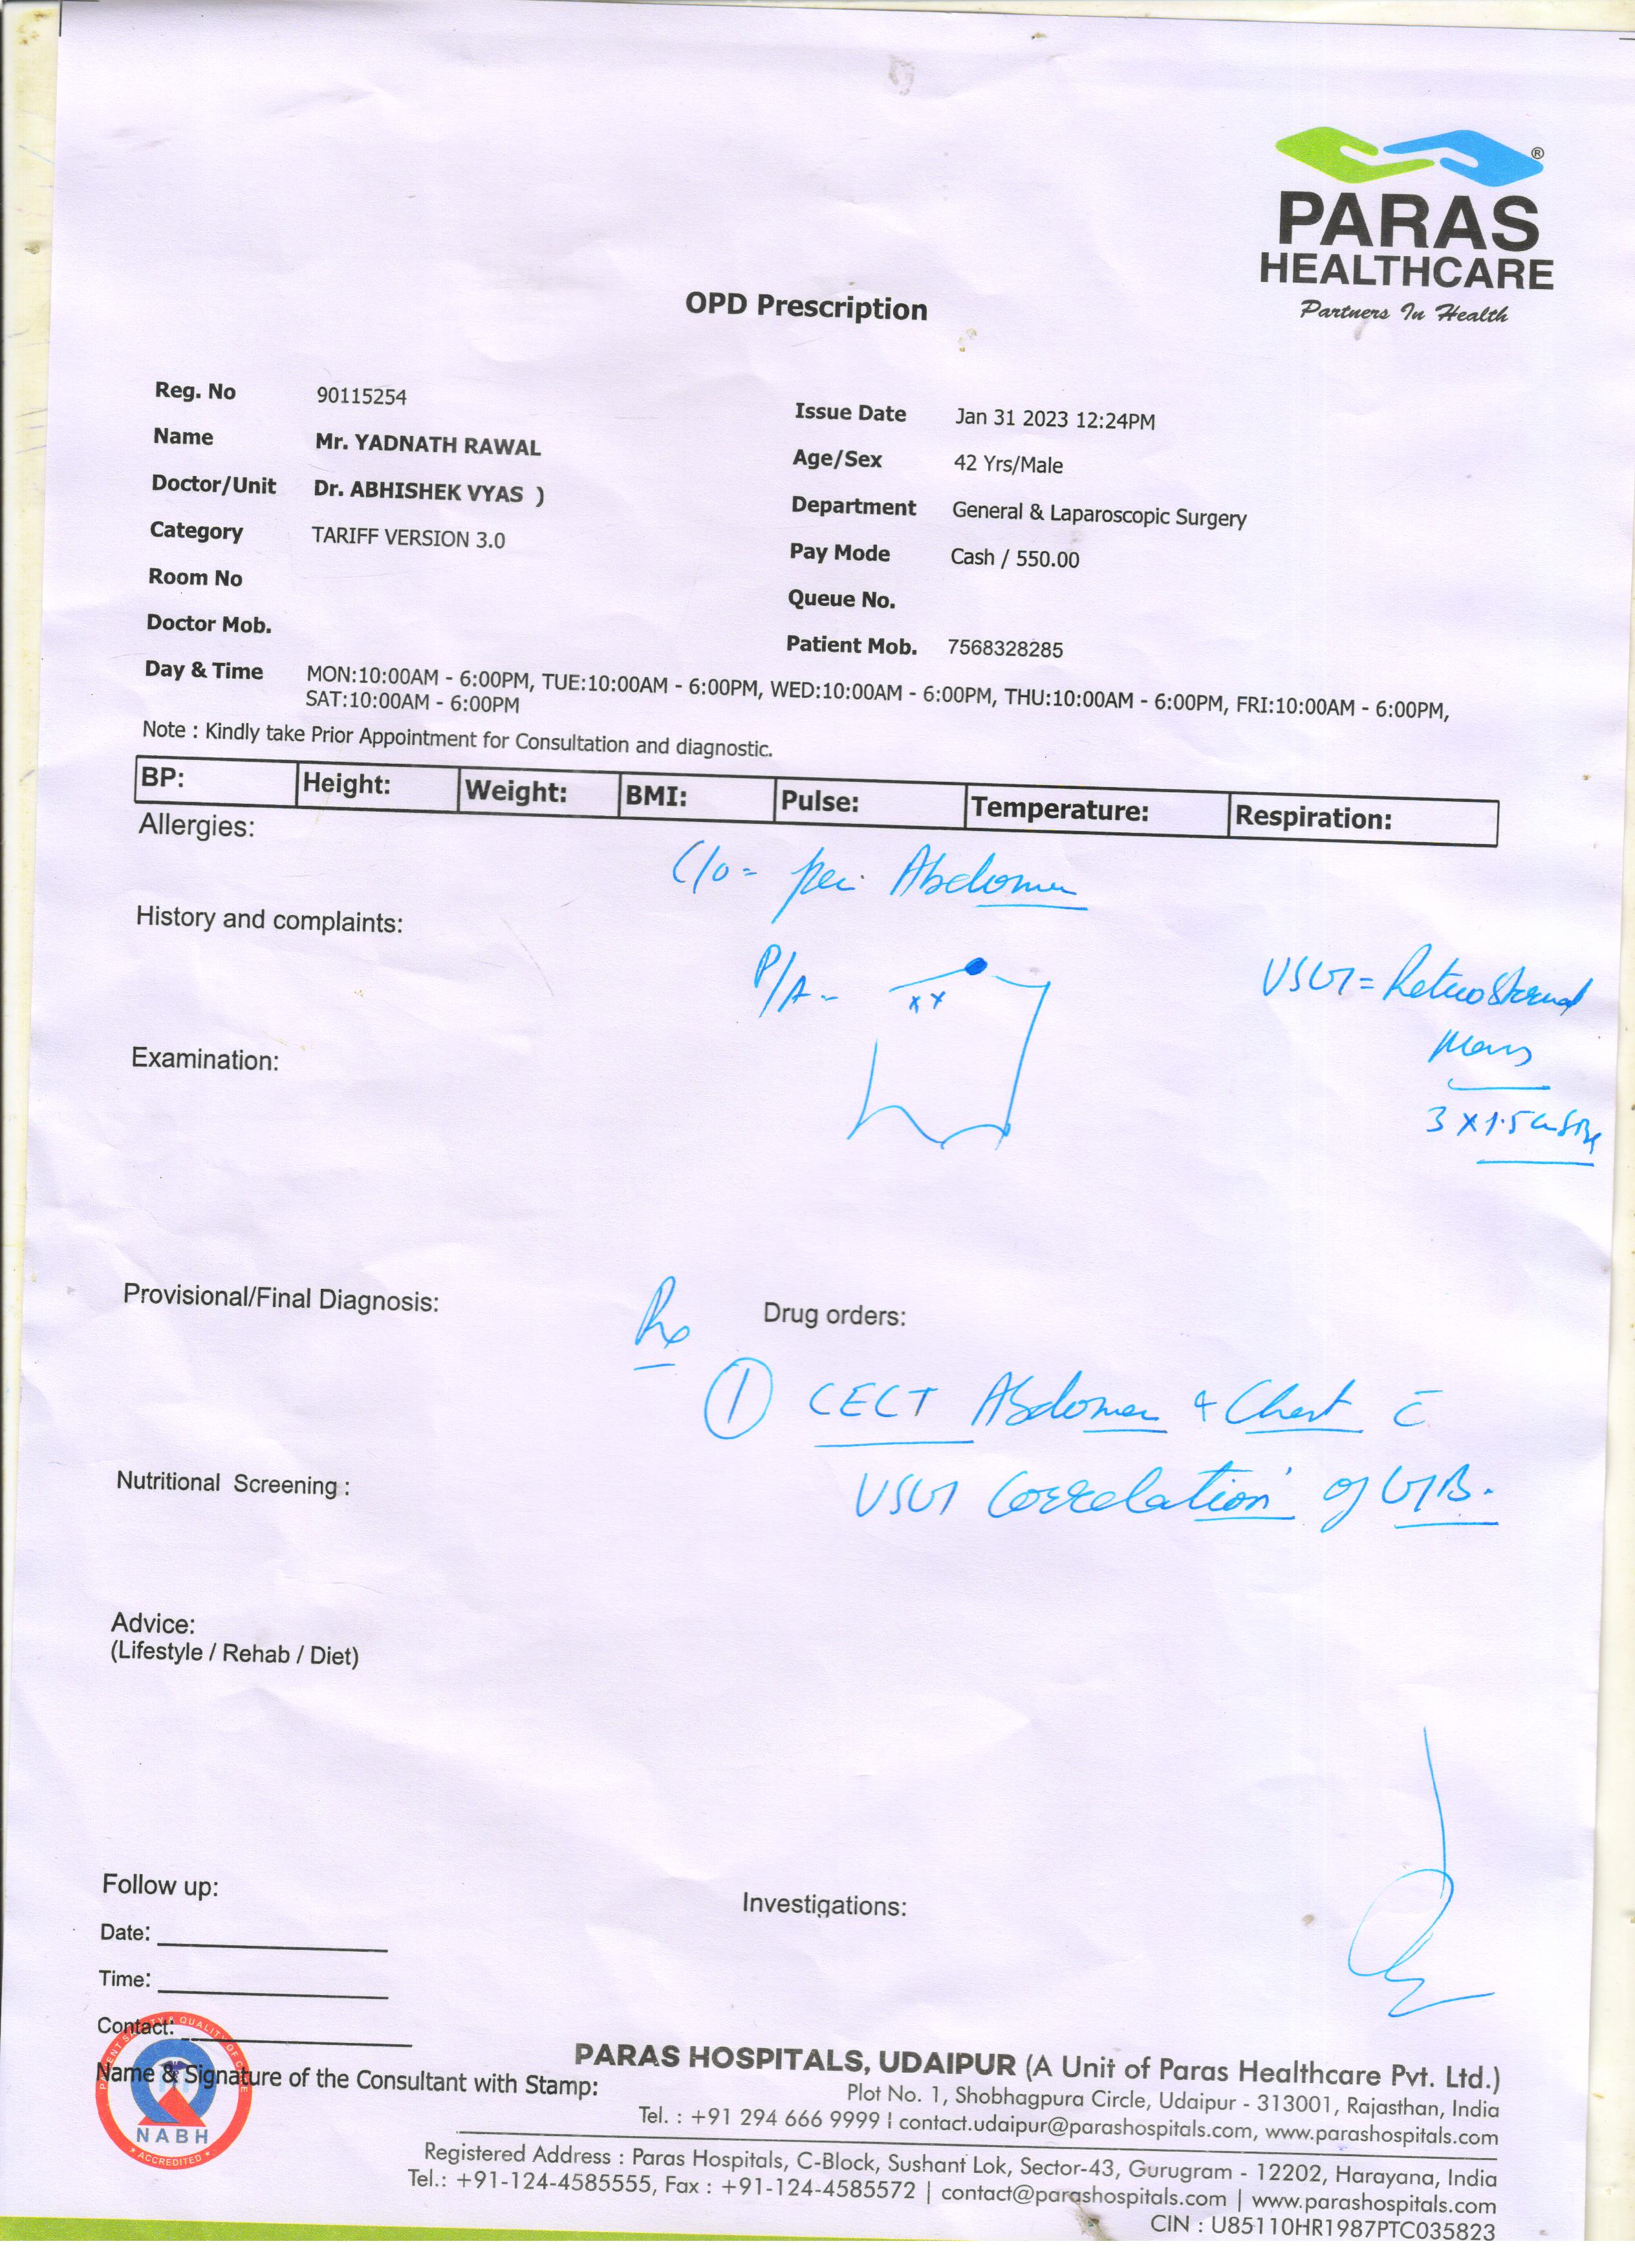 PARAS
HEALTHCARE
Partners In Health
®
OPD Prescription
Reg. No 90115254
Issue Date Jan 31 2023 12:24PM
Name Mr. YADNATH RAWAL
Age/Sex 42 Yrs/Male
Doctor/Unit Dr. ABHISHEK VYAS )
Department General & Laparoscopic Surgery
Category TARIFF VERSION 3.0
Pay Mode Cash / 550.00
Room No
Queue No.
Doctor Mob.
Patient Mob. 7568328285
Day & Time MON:10:00AM - 6:00PM, TUE:10:00AM - 6:00PM, WED:10:00AM - 6:00PM, THU:10:00AM - 6:00PM, FRI:10:00AM - 6:00PM,
SAT:10:00AM - 6:00PM
Note : Kindly take Prior Appointment for Consultation and diagnostic.
BP: Height: Weight: BMI: Pulse: Temperature: Respiration:
Allergies:
C/o = Abdomen
History and complaints:
P/A -
xx
USG = Retrosternal
Mass
3 x 1.5 cm
Examination:
Provisional/Final Diagnosis:
Rx
Drug orders:
① CECT Abdomen & Chest c̄
USG Correlation of GB.
Nutritional Screening :
Advice:
(Lifestyle / Rehab / Diet)
Follow up:
Investigations:
Date:
Time:
Contact:
Name & Signature of the Consultant with Stamp:
NABH
ACCREDITED
PARAS HOSPITALS, UDAIPUR (A Unit of Paras Healthcare Pvt. Ltd.)
Plot No. 1, Shobhagpura Circle, Udaipur - 313001, Rajasthan, India
Tel. : +91 294 666 9999 | contact.udaipur@parashospitals.com, www.parashospitals.com
Registered Address : Paras Hospitals, C-Block, Sushant Lok, Sector-43, Gurugram - 12202, Harayana, India
Tel.: +91-124-4585555, Fax : +91-124-4585572 | contact@parashospitals.com | www.parashospitals.com
CIN : U85110HR1987PTC035823